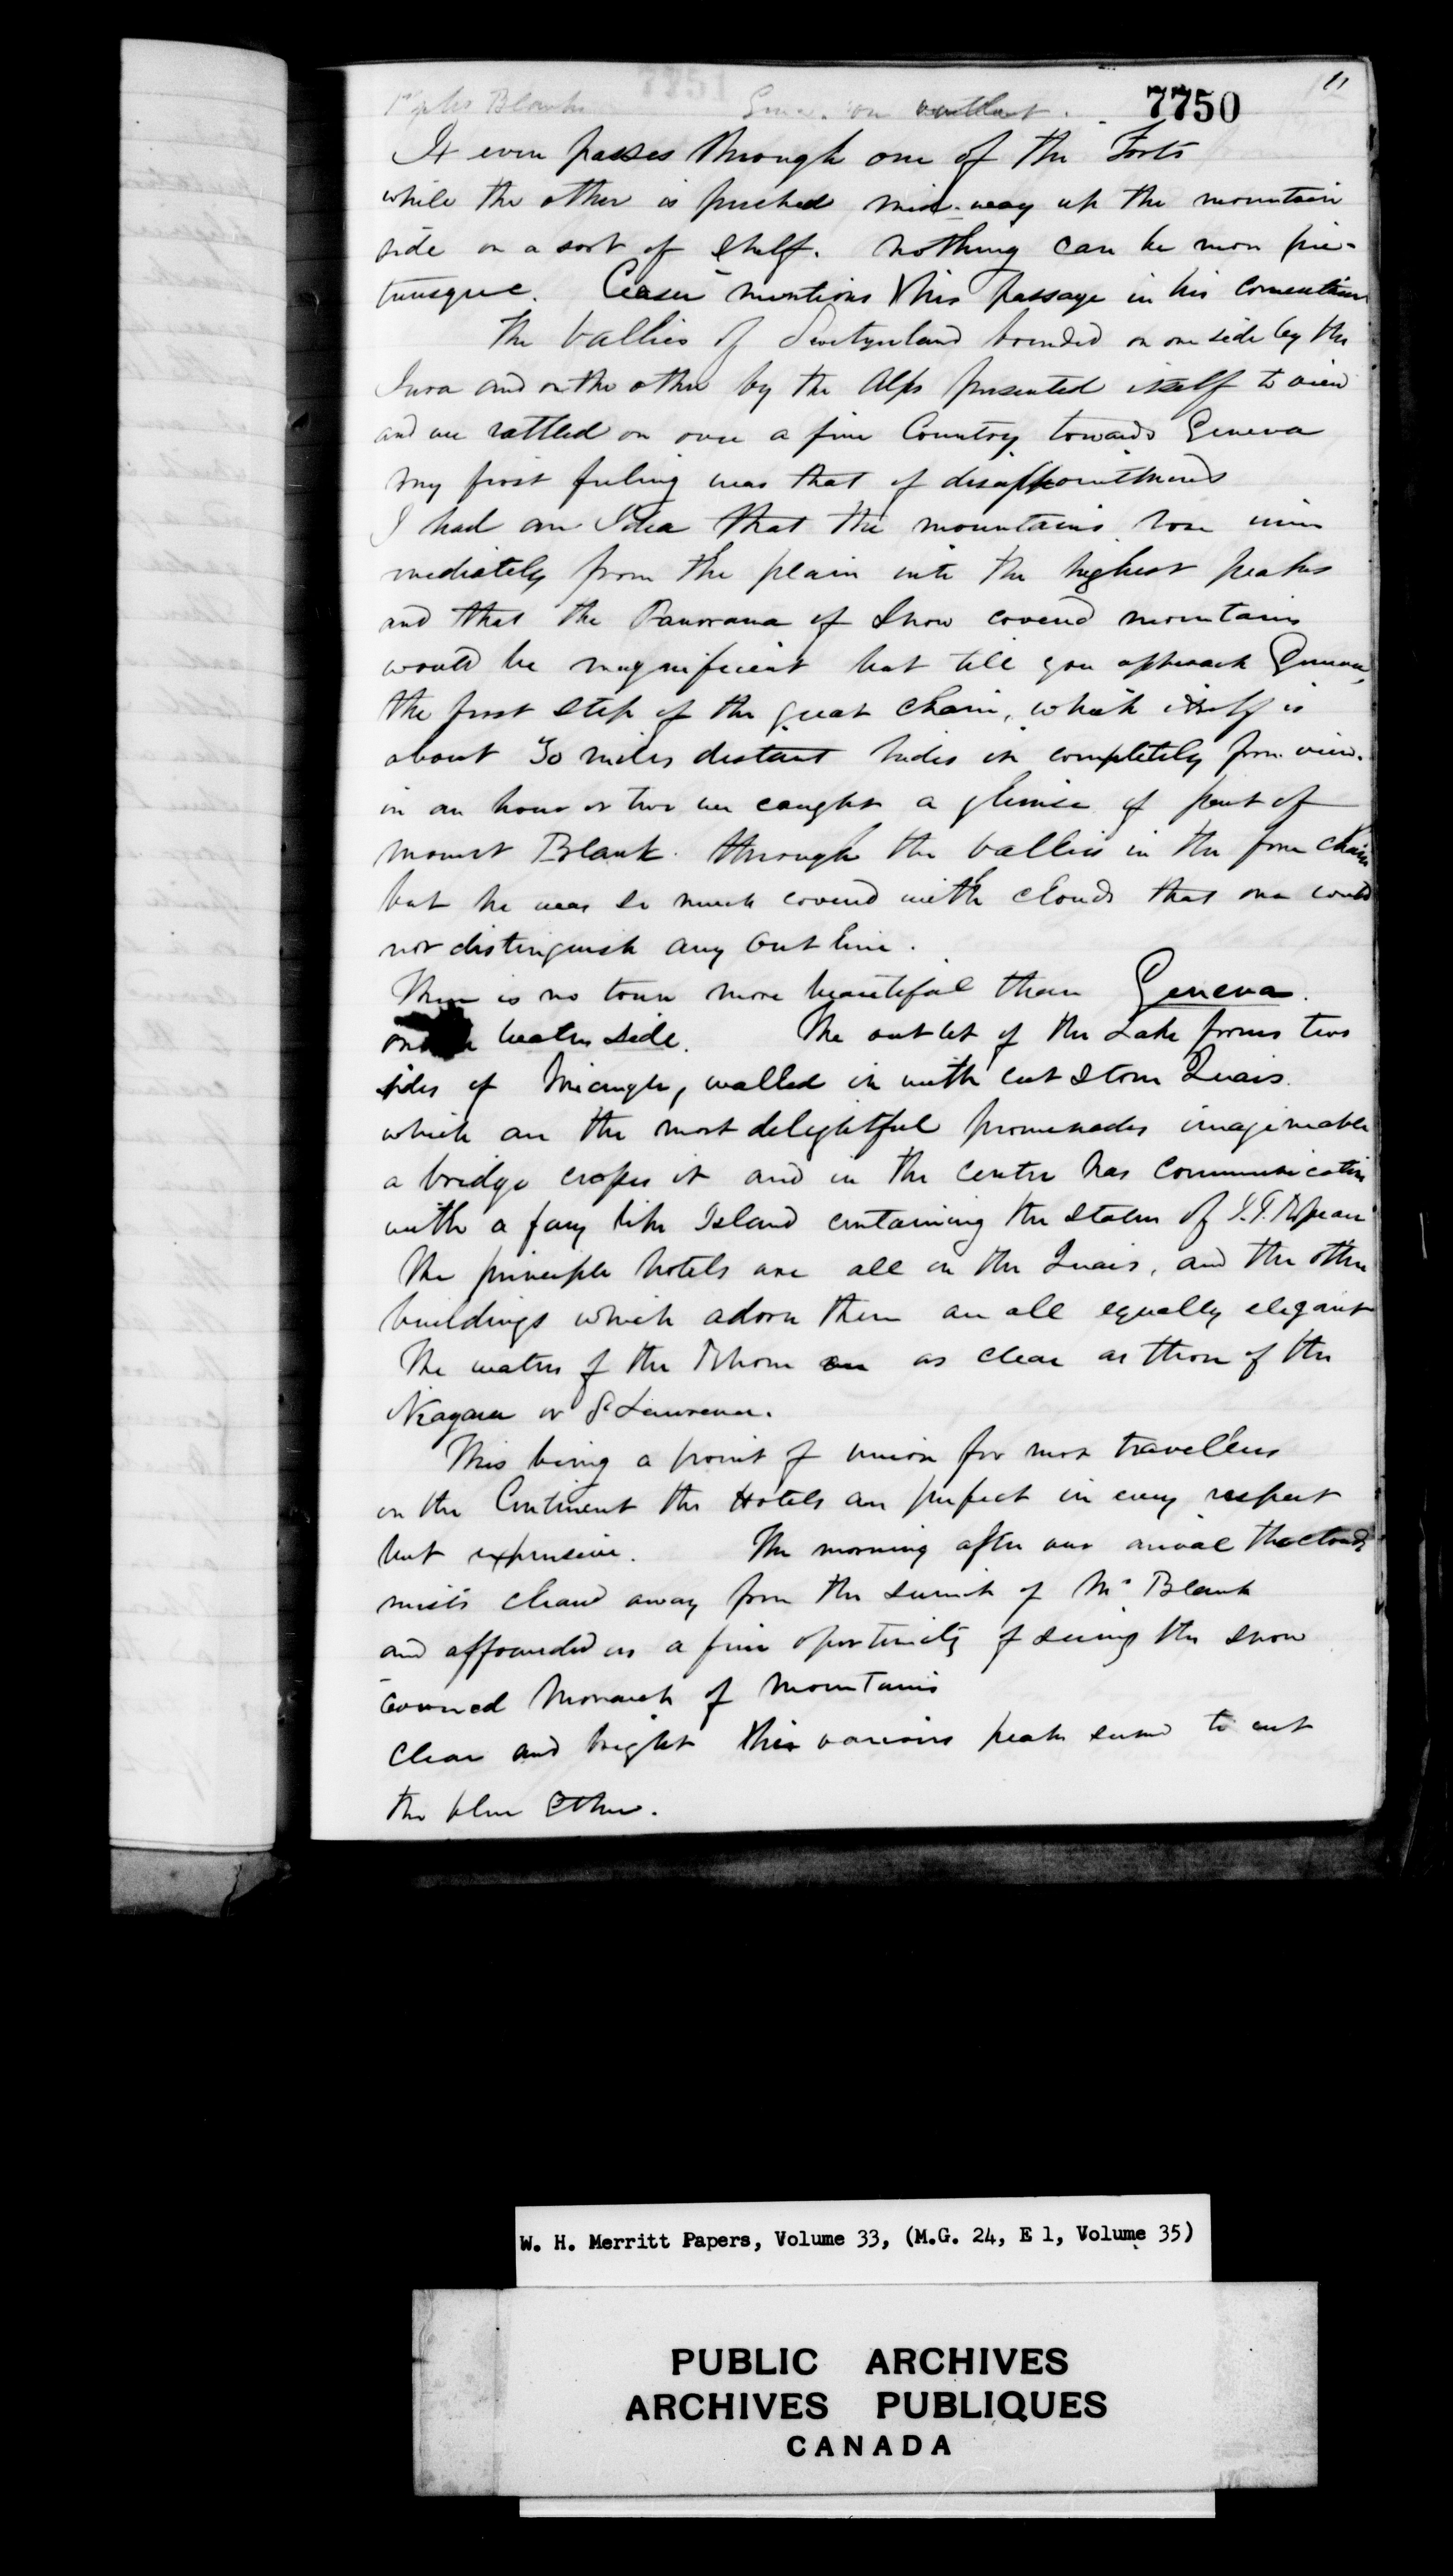 11
7750
It even passes through one of the Forts
while the other is perched mid-way up the mountain
side on a sort of shelf. Nothing can be more pic-
turesque. Ceaser mentions this passage in his Comentaries
The Vallies of Switzerland bounded on one side by the
Jura and on the other by the Alps presented itself to view
and we rattled on over a fine Country towards Geneva
my first feeling was that of disappointment
I had an Idea that the mountains rose im
mediately from the plain into the highest peaks
and that the Panorama of Snow covered mountains
would be magnificent but till you approach Geneva,
the first step of the great chain, which itself is
about 30 miles distant hides it completely from view.
in an hour or two we caught a glimse of part of
Mount Blank through the vallies in the fore chain
but he was so much covered with clouds that one could
not distinguish any out line.
There is no town more beautiful than Geneva.
on water side. The outlet of the Lake forms two
sides of triangle, walled in with cut stone Quais.
which are the most delightful promenades imagineable
a bridge crosses it and in the centre has communication
with a fairy like Island containing the statue of J.J. Rosseau
The principle hotels are all on the Quais, and the other
buildings which adorn them are all equally elegant
The waters of the Rhone are as clear as those of the
Niagara or St Lawrence.
This being a point of union for most travellers
on the Continent the Hotels are perfect in every respect
but expensive. The morning after our arival the clouds
mists cleared away from the sumit of Mt Blank
and affourded us a fine oportunity of seeing the snow
covered Monarch of Mountains
Clear and bright this various peaks seemed to cut
the blue Ether.
W. H. Merritt Papers, Volume 33, (M.G. 24, E 1, Volume 35)
PUBLIC ARCHIVES
ARCHIVES PUBLIQUES
CANADA